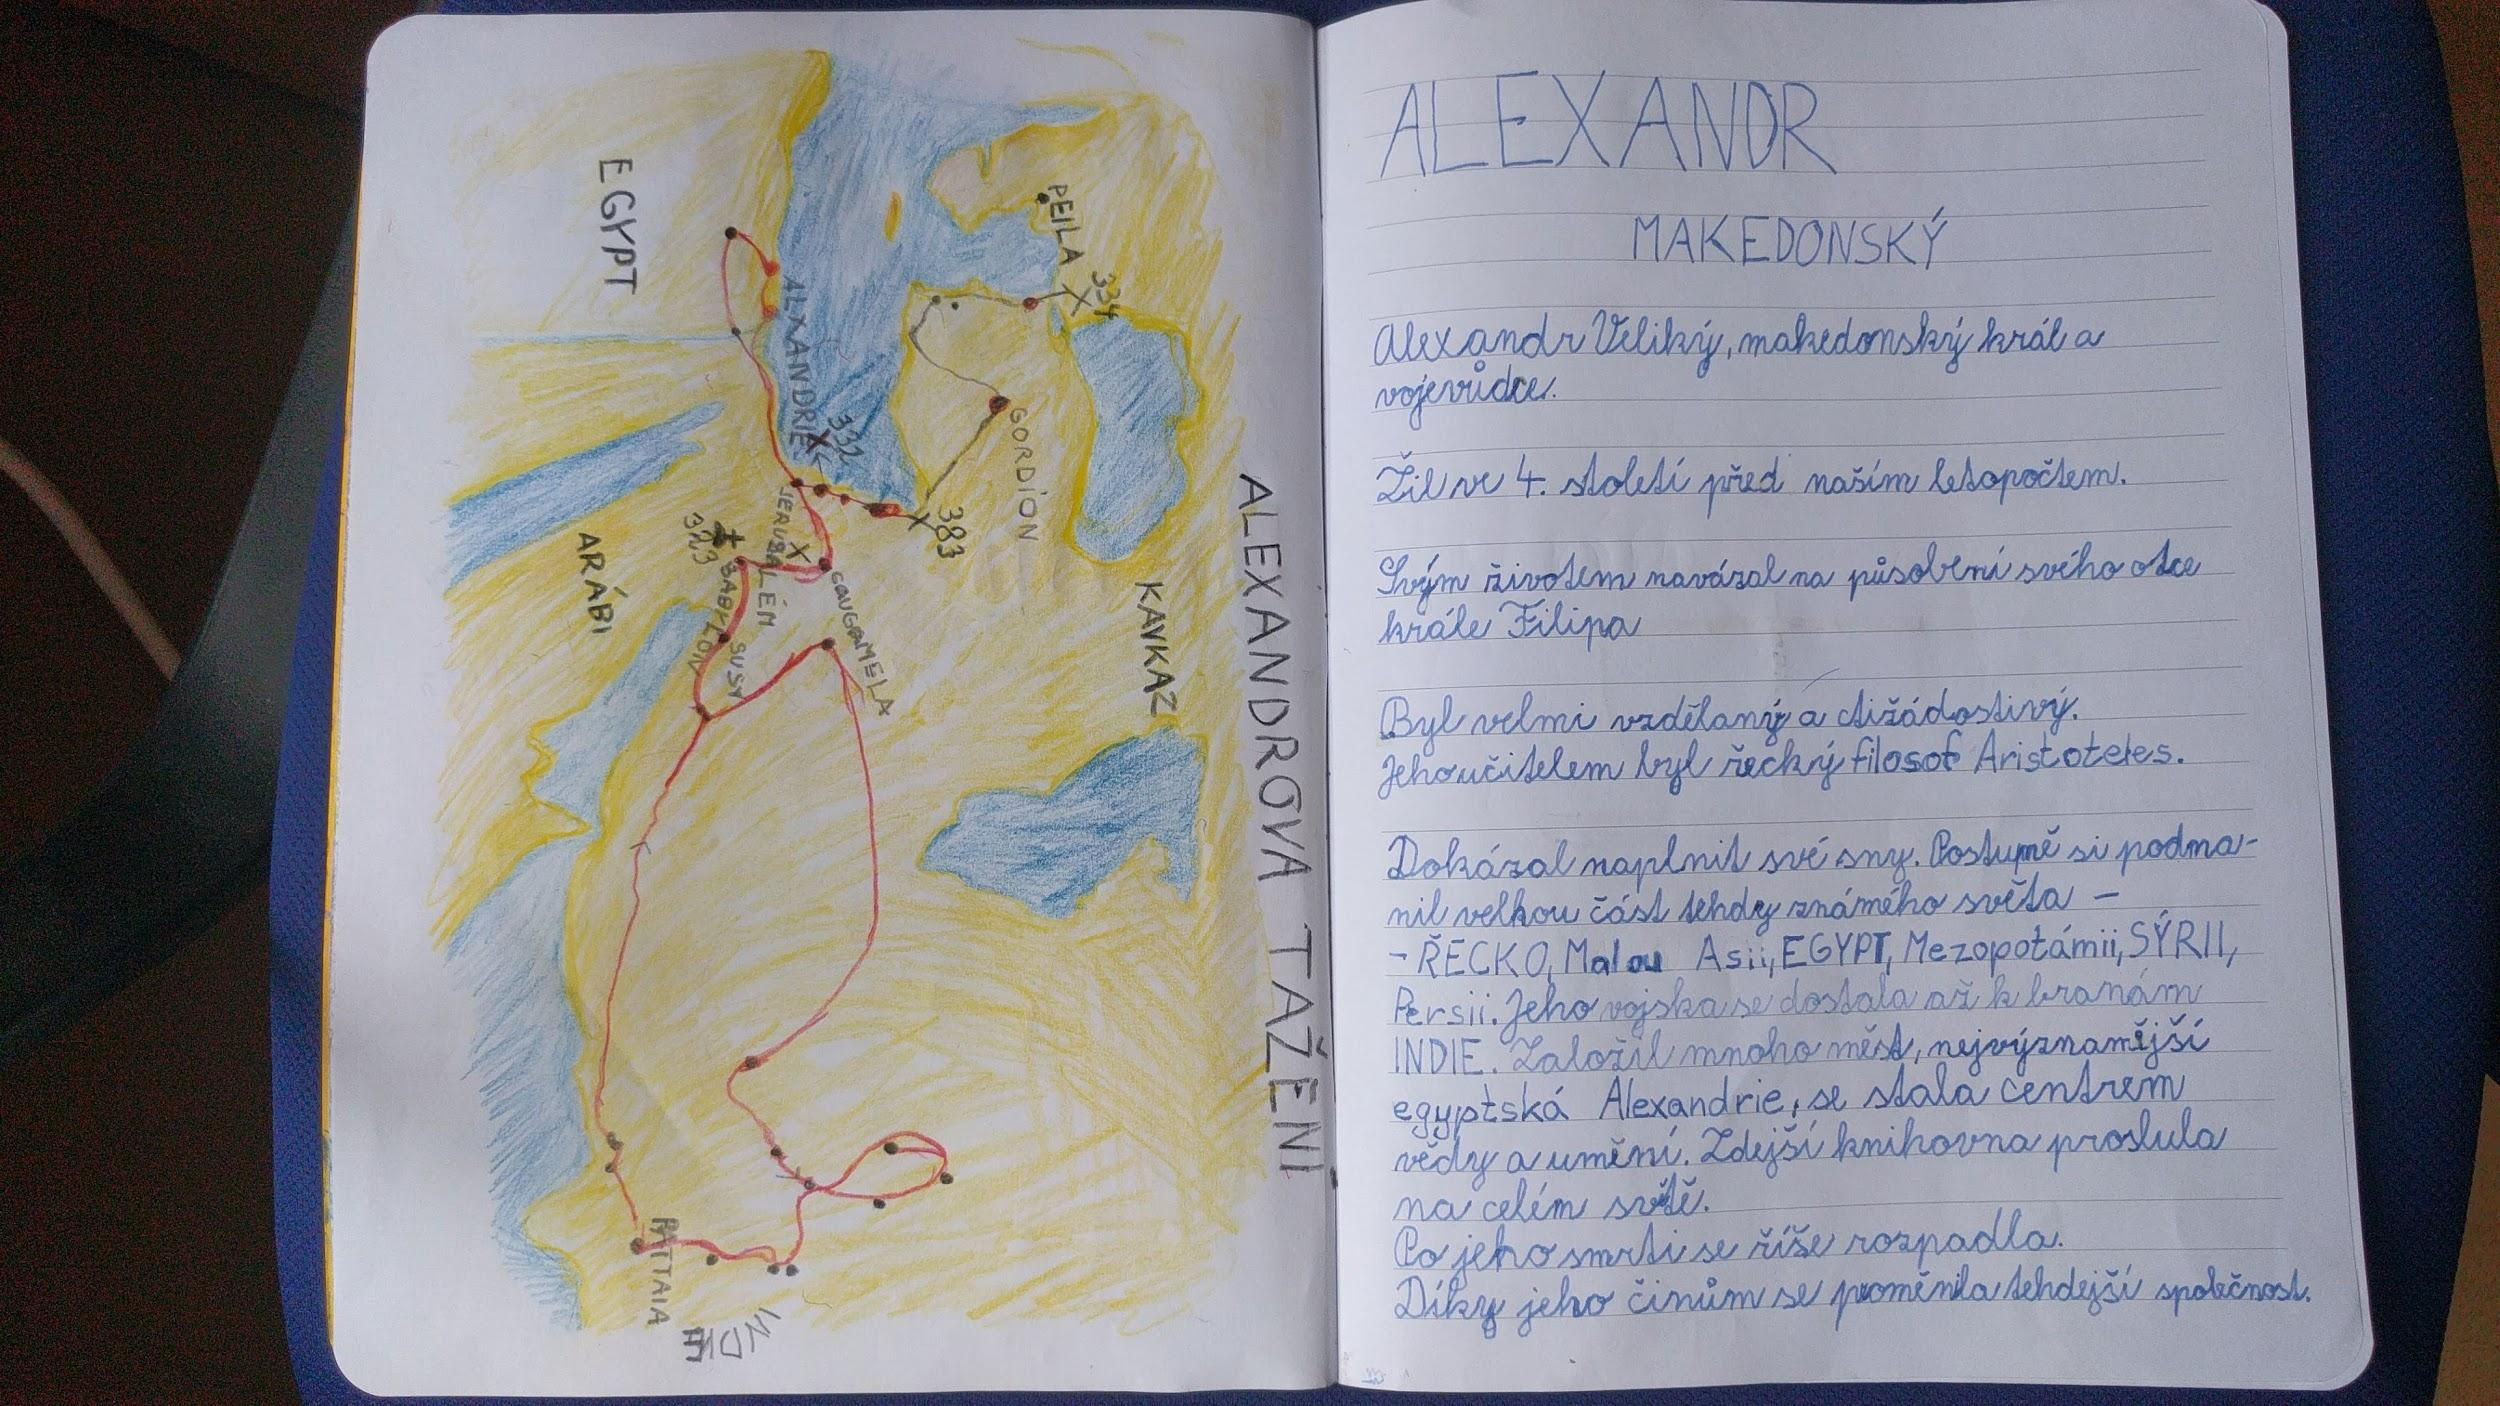 ALEXANDROVA TAŽENÍ
PELLA
334
GORDÍON
KAVKAZ
EGYPT
ALXANDRIE
332
383
JERUZALÉM
GAUGAMELA
323
BABYLON
SUSY
ARÁBI
PATTAIA
INDIE
ALEXANDR
MAKEDONSKÝ
Alexandr Veliký, makedonský král a
vojevůdce.
Žil ve 4. století před naším letopočtem.
Svým životem navázal na působení svého otce
krále Filipa
Byl velmi vzdělaný a ctižádostivý.
Jeho učitelem byl řecký filosof Aristoteles.
Dokázal naplnit své sny. Postupně si podma-
nil velkou část tehdy známého světa –
- ŘECKO, Malou Asii, EGYPT, Mezopotámii, SÝRII,
Persii. Jeho vojska se dostala až k branám
INDIE. Založil mnoho měst, nejvýznamější
egyptská Alexandrie, se stala centrem
vědy a umění. Zdejší knihovna proslula
na celém světě.
Po jeho smrti se říše rozpadla.
Díky jeho činům se proměnila tehdejší společnost.